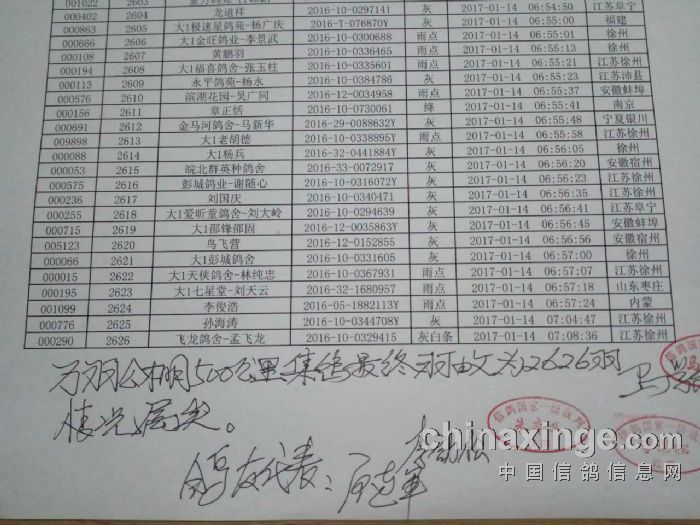 000402 2604 龙道祥 2016-10-0297141 灰 2017-01-14 06:54:50 江苏阜宁
000863 2605 大1极速星鸽苑-杨广庆 2016-T-076870Y 灰 2017-01-14 06:55:01 福建
000666 2606 大1金旺鸽业-李景武 2016-10-0300688 雨点 2017-01-14 06:55:11 徐州
000108 2607 黄鹏羽 2016-10-0336465 雨点 2017-01-14 06:55:13 徐州
000194 2608 大1福喜鸽舍-张玉柱 2016-10-0335601 雨点 2017-01-14 06:55:21 江苏徐州
000113 2609 永平鸽苑-杨永 2016-10-0384786 灰 2017-01-14 06:55:23 江苏沛县
000576 2610 滨湖花园-吴广同 2016-12-0034958 雨点 2017-01-14 06:55:37 安徽蚌埠
000156 2611 章正恬 2016-10-0730061 绛 2017-01-14 06:55:41 南京
000691 2612 金马河鸽舍-马新华 2016-29-0088632Y 灰 2017-01-14 06:55:48 宁夏银川
009898 2613 大1老胡德 2016-10-0338895Y 雨点 2017-01-14 06:55:58 江苏徐州
000088 2614 大1杨兵 2016-32-0441884Y 灰 2017-01-14 06:56:05 徐州
000053 2615 皖北群英种鸽舍 2016-33-0072917 灰 2017-01-14 06:56:20 安徽宿州
000575 2616 彭城鸽业-谢随心 2016-10-0316072Y 灰 2017-01-14 06:56:23 江苏徐州
000236 2617 刘国庆 2016-10-0340471 灰 2017-01-14 06:56:35 江苏徐州
000255 2618 大1爱昕童鸽舍-刘大岭 2016-10-0294639 灰 2017-01-14 06:56:41 江苏阜宁
000715 2619 大1邵锋邵固 2016-12-0035863Y 灰 2017-01-14 06:56:45 安徽蚌埠
005123 2620 鸟飞营 2016-12-0152855 灰 2017-01-14 06:56:56 安徽宿州
000066 2621 大1彭城鸽舍 2016-10-0331605 灰 2017-01-14 06:57:00 徐州
000015 2622 大1天侠鸽舍-林纯忠 2016-10-0367931 雨点 2017-01-14 06:57:07 江苏徐州
000195 2623 大1七星堂-刘天云 2016-32-1680957 雨点 2017-01-14 06:57:18 山东枣庄
001099 2624 李俊浩 2016-05-1882113Y 雨点 2017-01-14 06:57:24 内蒙
000776 2625 孙海涛 2016-10-0344708Y 灰 2017-01-14 07:04:47 江苏徐州
000290 2626 飞龙鸽舍-孟飞龙 2016-10-0329415 灰白条 2017-01-14 07:08:36 江苏徐州
万羽公棚500公里集鸽最终羽数为2626羽
情况属实。
鸽友代表：
chinaxinge.com
中国信鸽信息网